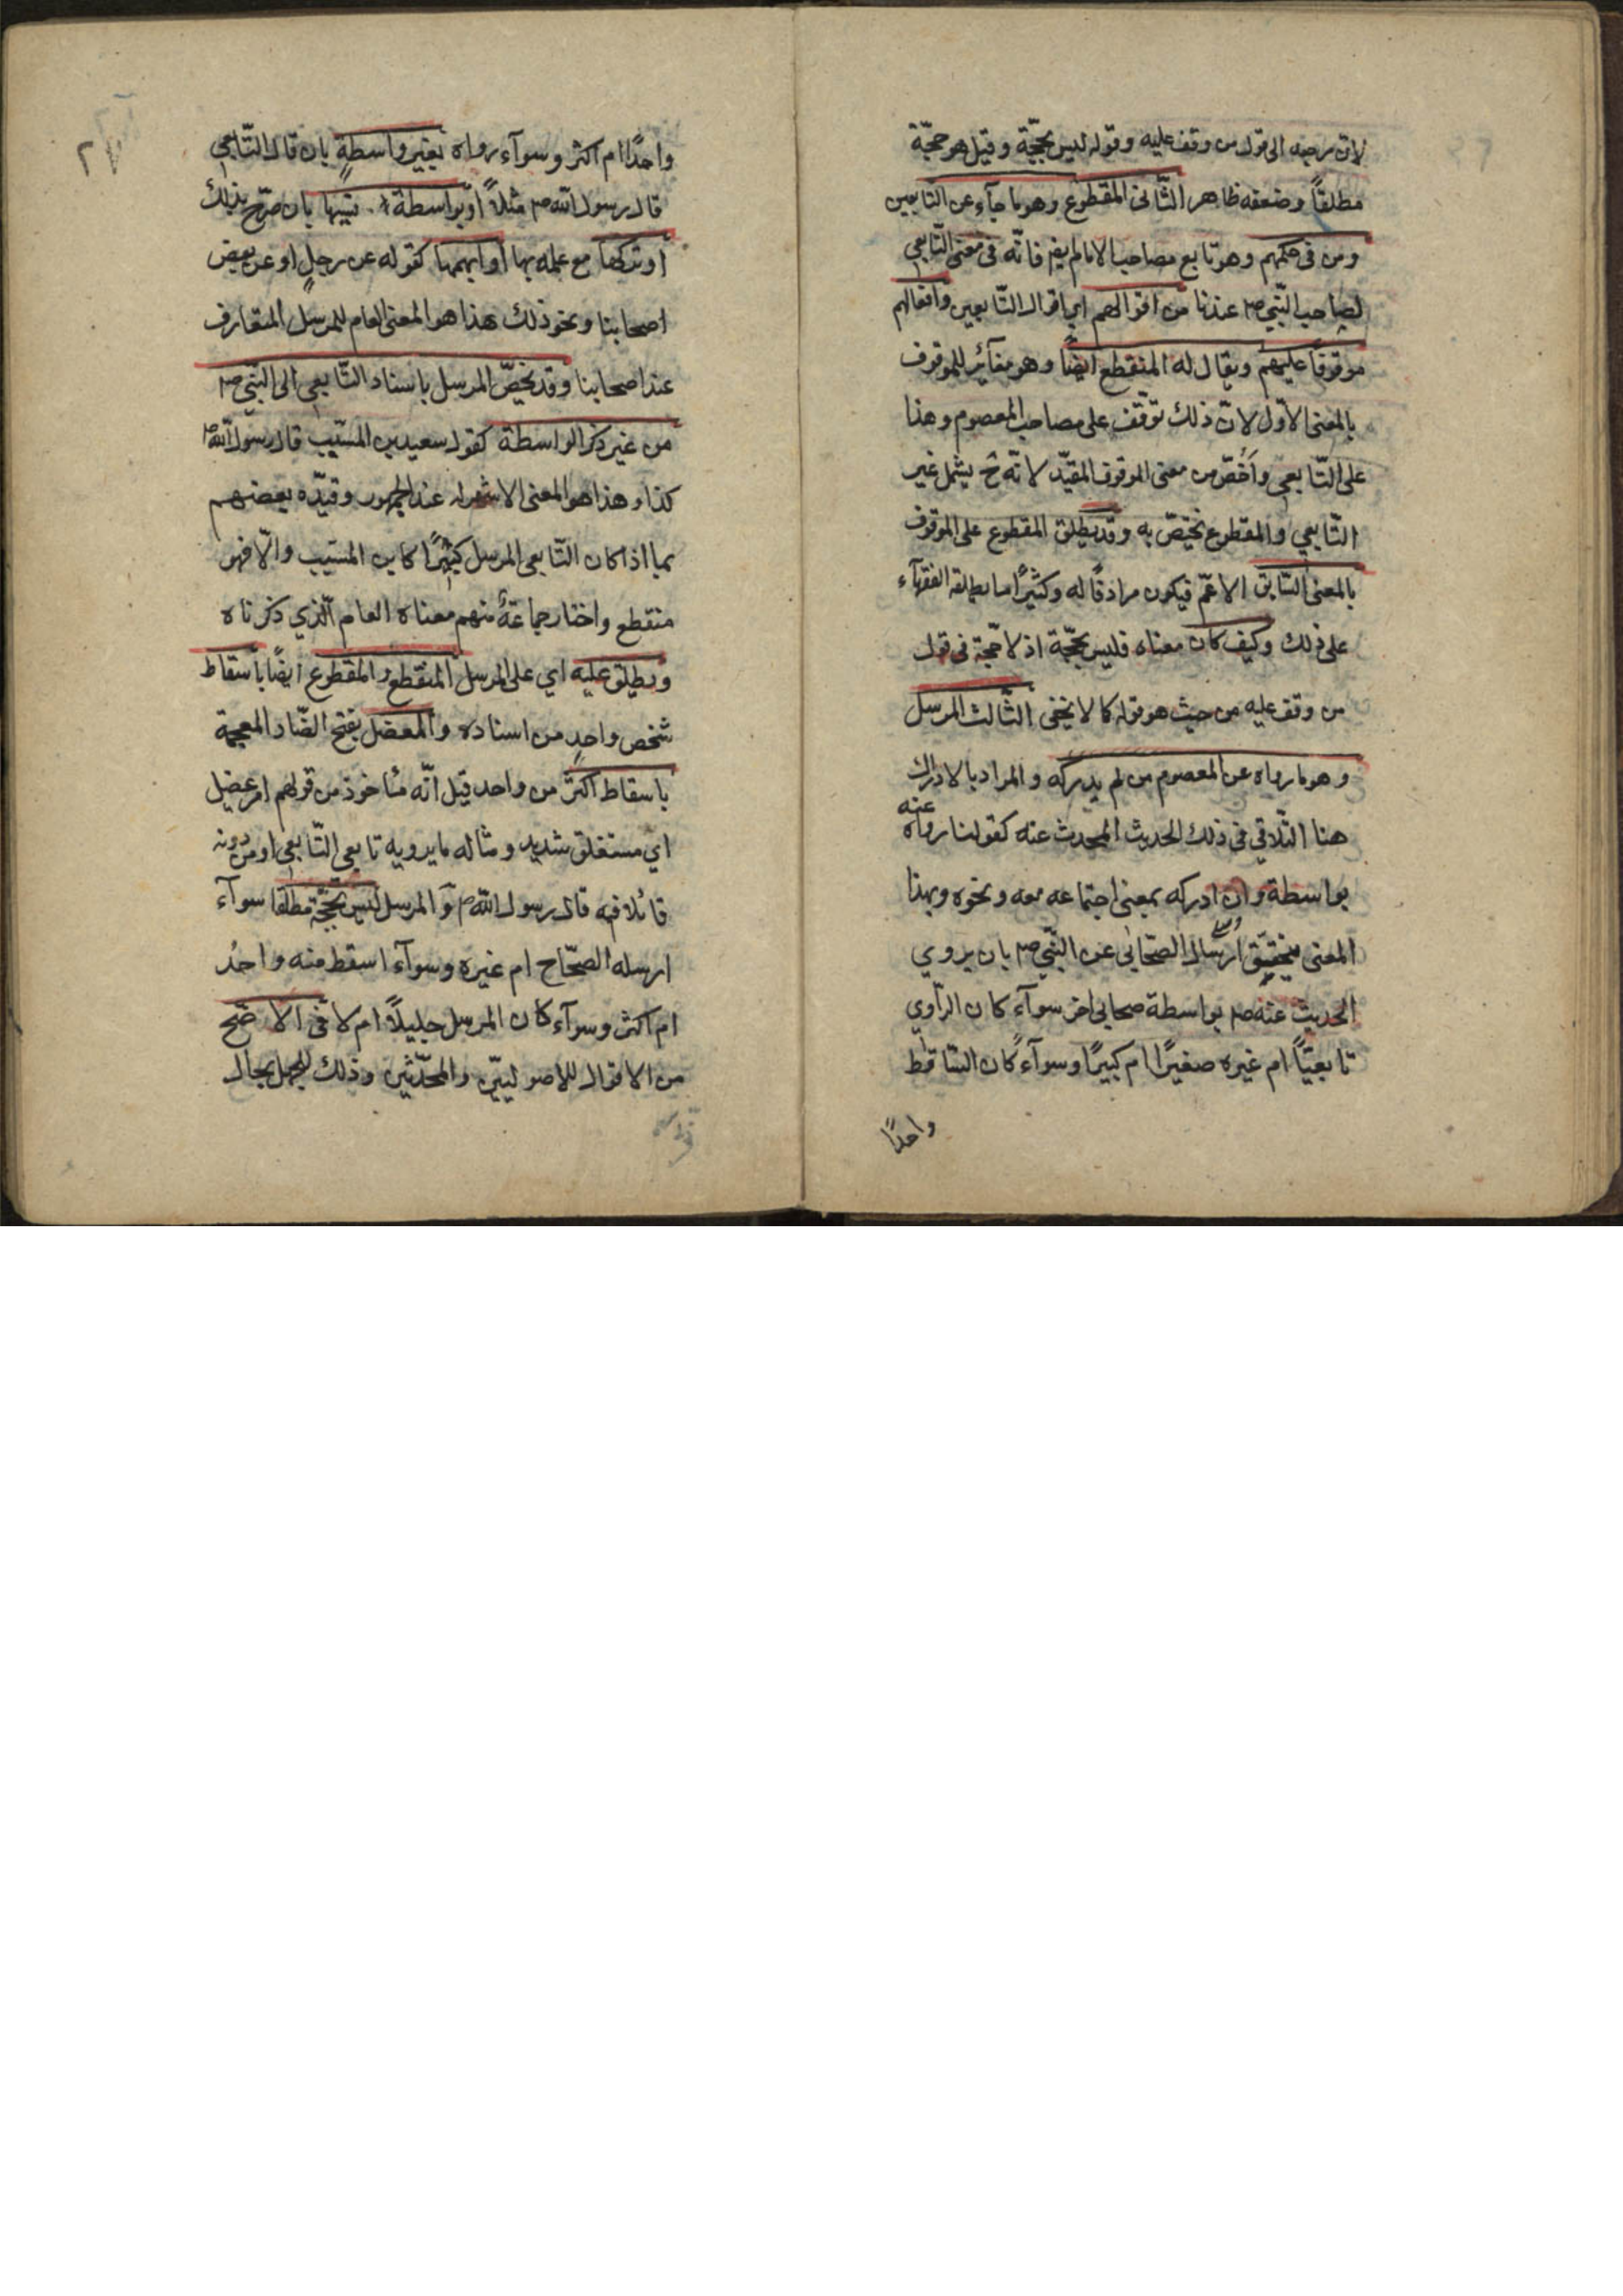 لان مرجعه الى قول من وقف عليه وقوله ليس بحجّة وقيل هو حجّة
مطلقاً وضعفه ظاهر الثّانى المقطوع وهو ما جآء عن التابعين
ومن فى حكمهم وهو تابع مصاحب الامام ايض فانّه فى معنى التّابعي
لصاحب النّبي ص عندنا من اقوالهم اي اقوال التّابعين وافعالهم
موقوفاً عليهم ويقال له المنقطع ايضًا وهو مغآئر للموقوف
بالمعنى الاوّل لانّ ذلك توقّف على مصاحب المعصوم وهذا
على التّابعي واخصّ من معنى الموقوف المقيّد لانّه ح يشمل غير
التّابعي والمقطوع يختصّ به وقد يطلق المقطوع على الموقوف
بالمعنى السّابق الاعمّ فيكون مرادفًا له وكثيرًا ما يطلقه الفقهآء
على ذلك وكيف كان معناه فليس بحجّة اذ لا حجّة فى قول
من وقف عليه من حيث هو قوله كما لا يخفى الثّالث المرسل
وهو ما رواه عن المعصوم من لم يدركه والمراد بالادراك
هنا التّلاقي فى ذلك الحديث المحدث عنه كقولنا رواه عنه
بواسطة وان ادركه بمعنى اجتماعه معه ونحوه وبهذا
المعنى يتحقّق ارسال الصّحابى عن النّبي ص بان يروي
الحديث عنه ص بواسطة صحابي اخر سوآء كان الرّاوي
تابعيّاً ام غيره صغيرًا ام كبيرًا وسوآء كان السّاقط
واحدًا
٢٧
واحدًا ام اكثر وسوآء رواه بغير واسطةٍ بان قال التّابعي
قال رسول اللّه ص مثلاً او بواسطة نسيها بان صرّح بذلك
او تركها مع علمه بها او ابهمها كقوله عن رجلٍ او عن بعض
اصحابنا ونحو ذلك هذا هو المعنى العام للمرسل المتعارف
عند اصحابنا وقد يخصّ المرسل باسناد التّابعي الى النّبي ص
من غير ذكر الواسطة كقول سعيد بن المسيّب قال رسول اللّه ص
كذا وهذا هو المعنى الاشهر له عند الجمهور وقيّده بعضهم
بما اذا كان التّابعي المرسل كبيرًا كابن المسيّب والّا فهو
منقطع واختار جماعةٌ منهم معناه العام الّذي ذكرناه
ويطلق عليه اي على المرسل المنقطع والمقطوع ايضًا باسقاط
شخص واحدٍ من اسناده والمعضل بفتح الضّاد المعجمة
باسقاط اكثر من واحد قيل انّه مأخوذ من قولهم امر عضيل
اي مستغلق شديد ومثاله ما يرويه تابعي التّابعي او من دونه
قائلا فيه قال رسول اللّه ص والمرسل ليس بحجّة مطلقا سوآء
ارسله الصّحّاح ام غيره وسوآء اسقط منه واحدٌ
ام اكثر وسوآء كان المرسل جليلاً ام لا فى الاصّح
من الاقوال للاصوليّين والمحدّثين وذلك للجهل بحال